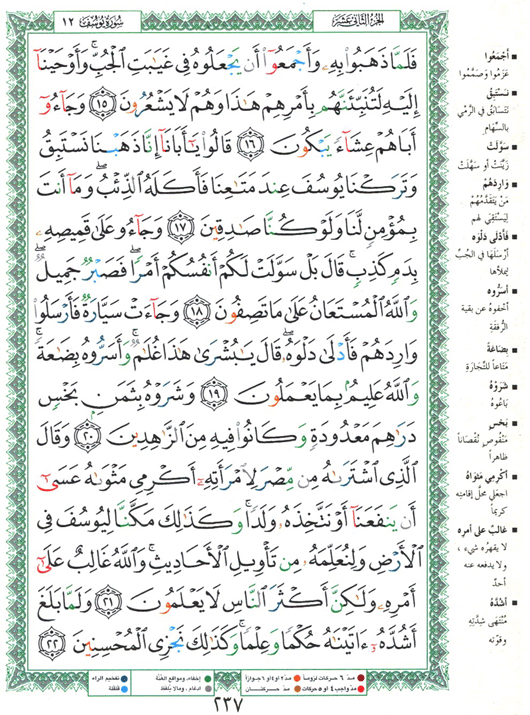 سورة يوسف ١٢
الجزء الثاني عشر
فَلَمَّا ذَهَبُوا۟ بِهِۦ وَأَجْمَعُوٓا۟ أَن يَجْعَلُوهُ فِى غَيَـٰبَتِ ٱلْجُبِّ ۚ وَأَوْحَيْنَآ
إِلَيْهِ لَتُنَبِّئَنَّهُم بِأَمْرِهِمْ هَـٰذَا وَهُمْ لَا يَشْعُرُونَ ١٥ وَجَآءُوٓ
أَبَاهُمْ عِشَآءً يَبْكُونَ ١٦ قَالُوا۟ يَـٰٓأَبَانَآ إِنَّا ذَهَبْنَا نَسْتَبِقُ
وَتَرَكْنَا يُوسُفَ عِندَ مَتَـٰعِنَا فَأَكَلَهُ ٱلذِّئْبُ ۖ وَمَآ أَنتَ
بِمُؤْمِنٍ لَّنَا وَلَوْ كُنَّا صَـٰدِقِينَ ١٧ وَجَآءُو عَلَىٰ قَمِيصِهِۦ
بِدَمٍ كَذِبٍ ۚ قَالَ بَلْ سَوَّلَتْ لَكُمْ أَنفُسُكُمْ أَمْرًا ۖ فَصَبْرٌ جَمِيلٌ ۖ
وَٱللَّهُ ٱلْمُسْتَعَانُ عَلَىٰ مَا تَصِفُونَ ١٨ وَجَآءَتْ سَيَّارَةٌ فَأَرْسَلُوا۟
وَارِدَهُمْ فَأَدْلَىٰ دَلْوَهُۥ ۖ قَالَ يَـٰبُشْرَىٰ هَـٰذَا غُلَـٰمٌ ۚ وَأَسَرُّوهُ بِضَـٰعَةً ۚ
وَٱللَّهُ عَلِيمٌۢ بِمَا يَعْمَلُونَ ١٩ وَشَرَوْهُ بِثَمَنٍۭ بَخْسٍ
دَرَٰهِمَ مَعْدُودَةٍ وَكَانُوا۟ فِيهِ مِنَ ٱلزَّٰهِدِينَ ٢٠ وَقَالَ
ٱلَّذِى ٱشْتَرَىٰهُ مِن مِّصْرَ لِٱمْرَأَتِهِۦٓ أَكْرِمِى مَثْوَىٰهُ عَسَىٰٓ
أَن يَنفَعَنَآ أَوْ نَتَّخِذَهُۥ وَلَدًا ۚ وَكَذَٰلِكَ مَكَّنَّا لِيُوسُفَ فِى
ٱلْأَرْضِ وَلِنُعَلِّمَهُۥ مِن تَأْوِيلِ ٱلْأَحَادِيثِ ۚ وَٱللَّهُ غَالِبٌ عَلَىٰٓ
أَمْرِهِۦ وَلَـٰكِنَّ أَكْثَرَ ٱلنَّاسِ لَا يَعْلَمُونَ ٢١ وَلَمَّا بَلَغَ
أَشُدَّهُۥٓ ءَاتَيْنَـٰهُ حُكْمًا وَعِلْمًا ۚ وَكَذَٰلِكَ نَجْزِى ٱلْمُحْسِنِينَ ٢٢
أجْمَعُوا
عَزَمُوا وَصَمَّمُوا
نَسْتَبِقُ
نَتَسَابَقُ فِي الرَّمْيِ
بالسِّهَامِ
سَوَّلَتْ
زَيَّنَتْ أو سَهَّلَتْ
وَارِدَهُمْ
مَنْ يَتَقَدَّمُهُمْ
لِيَسْتَقِيَ لهم
فَأَدْلَى دَلْوَهُ
أرْسَلَهَا فِي الجُبِّ
لِيَمْلأها
أسَرُّوه
أخفوهُ عن بقية
الرُّفْقَةِ
بِضَاعَةً
مَتَاعاً للتِّجَارَةِ
شَرَوْهُ
بَاعُوهُ
بَخْسٍ
مَنْقُوصٍ نُقْصَاناً
ظاهراً
أكْرِمِي مَثْوَاهُ
اجعَلِي محلَّ إقامتِهِ
كريماً
غالِبٌ على أمرِهِ
لا يقهرُه شيء ،
ولا يدفعه عنه
أحدٌ
أشُدَّهُ
مُنْتَهَى شِدَّتِهِ
وقوَّتِه
مدّ ٦ حركات لزوماً
مدّ ٢ او ٤ او ٦ جوازاً
إخفاء، ومواقع الغُنَّة
تفخيم الراء
مدّ واجب ٤ او ٥ حركات
مدّ حركتــان
ادغام ، وما لا يُلفَظ
قلقلة
٢٣٧